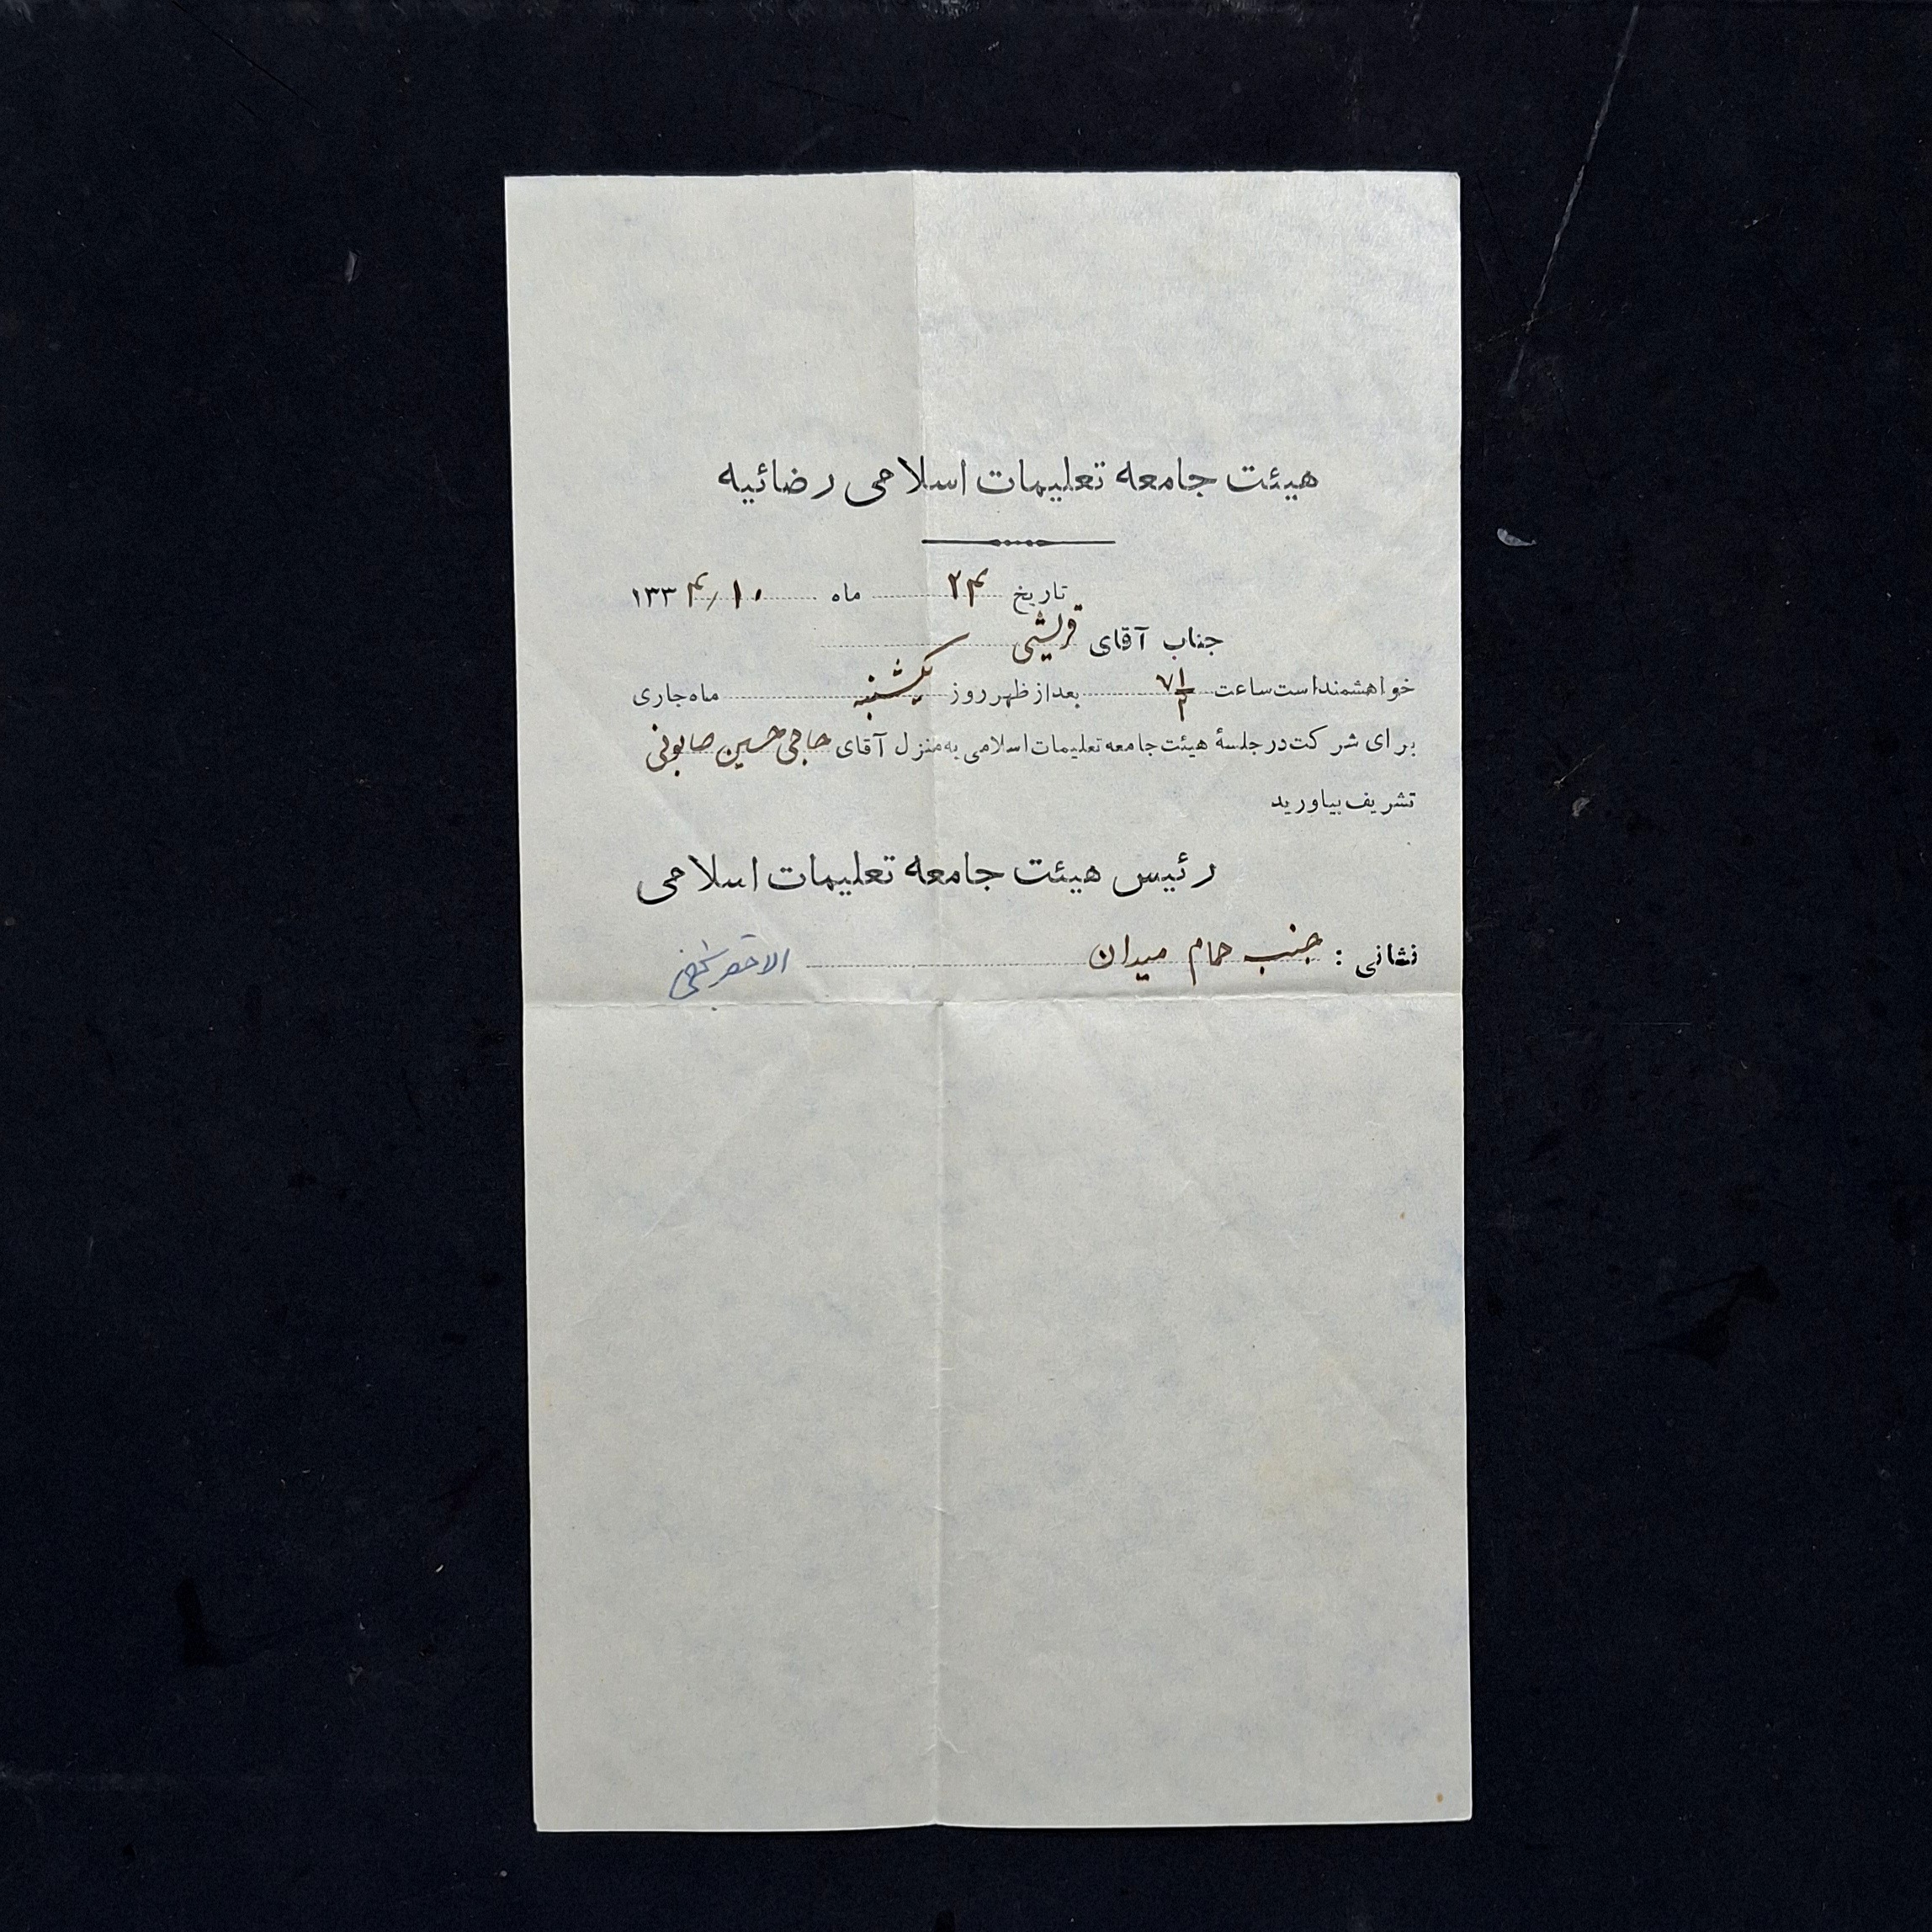 هیئت جامعه تعلیمات اسلامی رضائیه
تاریخ ۲۴ ماه ۱۰ / ۱۳۳۴
جناب آقای قریشی
خواهشمند است ساعت ۷ ۱/۲ بعد از ظهر روز یکشنبه ماه جاری
برای شرکت در جلسهٔ هیئت جامعه تعلیمات اسلامی به منزل آقای حاجی حسین صابونی
تشریف بیاورید
رئیس هیئت جامعه تعلیمات اسلامی
نشانی : جنب حمام میدان الاحقر